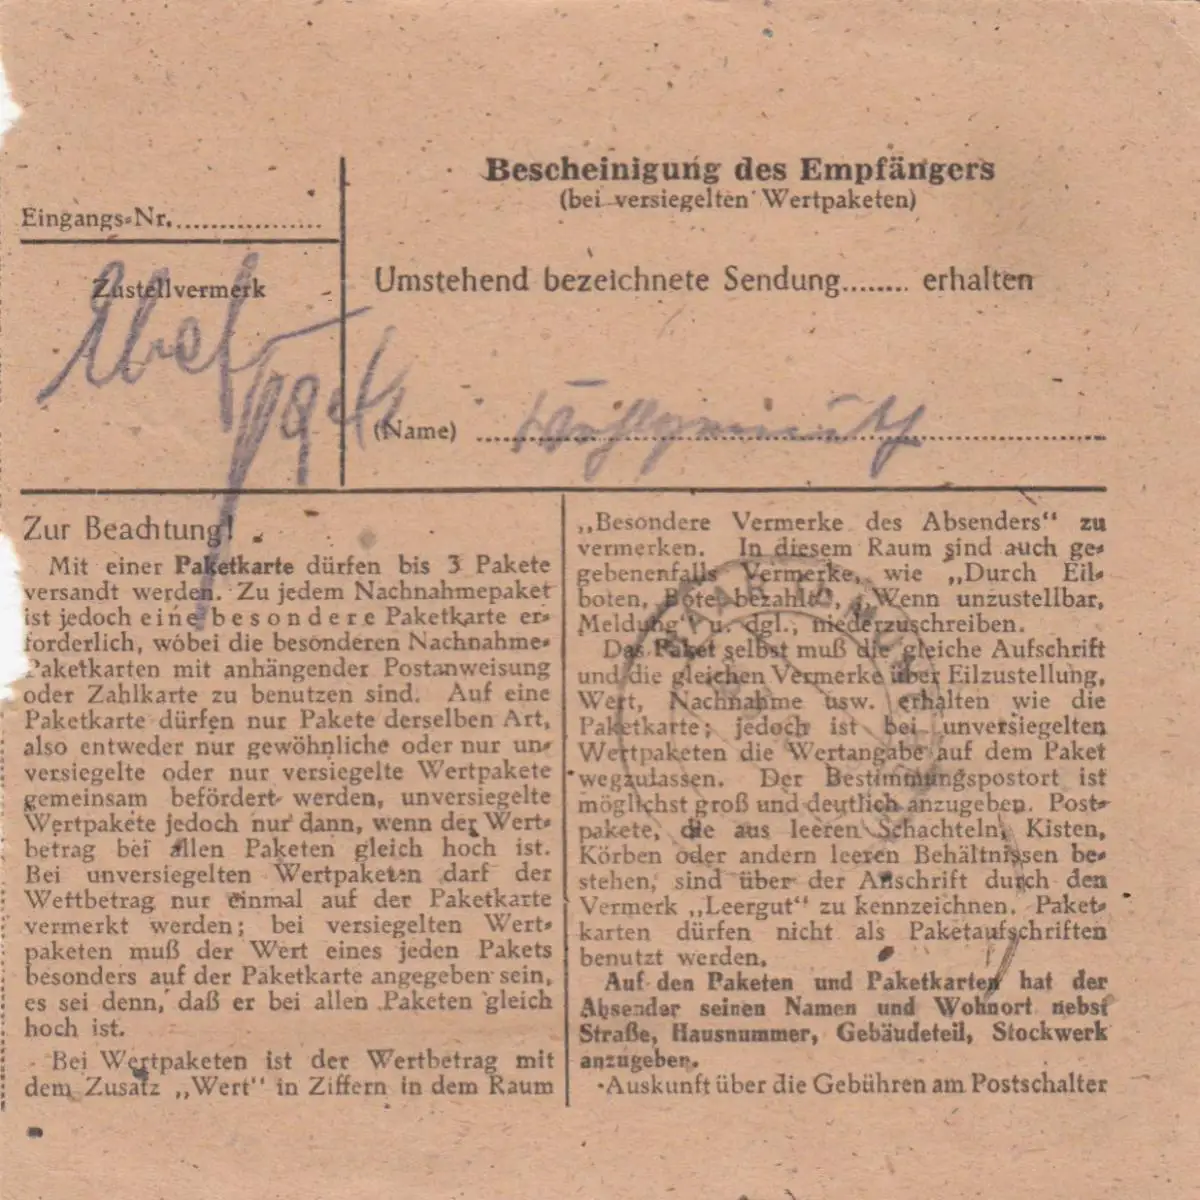 Bescheinigung des Empfängers
(bei versiegelten Wertpaketen)
Eingangs-Nr.
Zustellvermerk
Umstehend bezeichnete Sendung........ erhalten
(Name)
Zur Beachtung!
Mit einer Paketkarte dürfen bis 3 Pakete
versandt werden. Zu jedem Nachnahmepaket
ist jedoch eine besondere Paketkarte er-
forderlich, wobei die besonderen Nachnahme-
Paketkarten mit anhängender Postanweisung
oder Zahlkarte zu benutzen sind. Auf eine
Paketkarte dürfen nur Pakete derselben Art,
also entweder nur gewöhnliche oder nur un-
versiegelte oder nur versiegelte Wertpakete
gemeinsam befördert werden, unversiegelte
Wertpakete jedoch nur dann, wenn der Wert-
betrag bei allen Paketen gleich hoch ist.
Bei unversiegelten Wertpaketen darf der
Wertbetrag nur einmal auf der Paketkarte
vermerkt werden; bei versiegelten Wert-
paketen muß der Wert eines jeden Pakets
besonders auf der Paketkarte angegeben sein,
es sei denn, daß er bei allen Paketen gleich
hoch ist.
Bei Wertpaketen ist der Wertbetrag mit
dem Zusatz „Wert" in Ziffern in dem Raum
„Besondere Vermerke des Absenders" zu
vermerken. In diesem Raum sind auch ge-
gebenenfalls Vermerke, wie „Durch Eil-
boten, Bote bezahlt", „Wenn unzustellbar,
Meldung" u. dgl., niederzuschreiben.
Das Paket selbst muß die gleiche Aufschrift
und die gleichen Vermerke über Eilzustellung,
Wert, Nachnahme usw. erhalten wie die
Paketkarte; jedoch ist bei unversiegelten
Wertpaketen die Wertangabe auf dem Paket
wegzulassen. Der Bestimmungspostort ist
möglichst groß und deutlich anzugeben. Post-
pakete, die aus leeren Schachteln, Kisten,
Körben oder andern leeren Behältnissen be-
stehen, sind über der Anschrift durch den
Vermerk „Leergut" zu kennzeichnen. Paket-
karten dürfen nicht als Paketaufschriften
benutzt werden.
Auf den Paketen und Paketkarten hat der
Absender seinen Namen und Wohnort nebst
Straße, Hausnummer, Gebäudeteil, Stockwerk
anzugeben.
Auskunft über die Gebühren am Postschalter